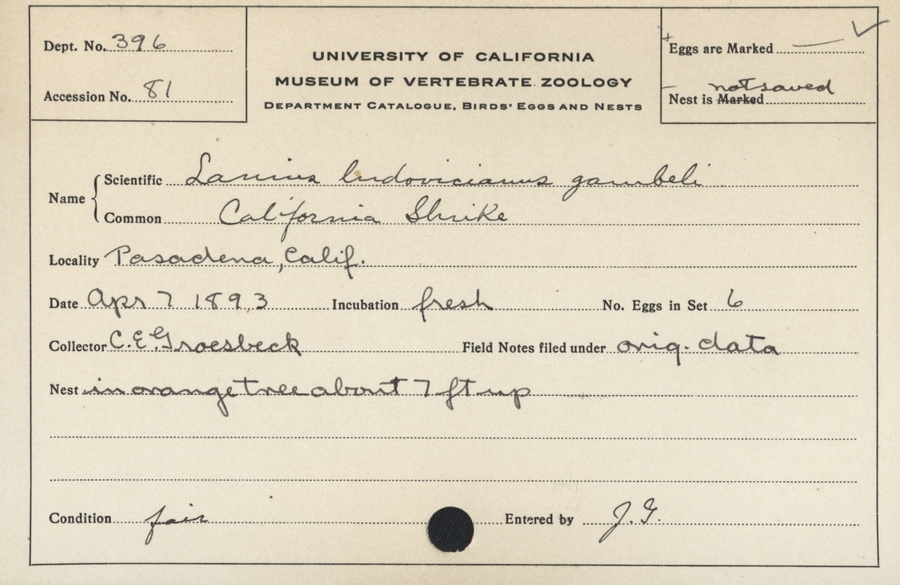 Dept. No. 396
Accession No. 81
UNIVERSITY OF CALIFORNIA
MUSEUM OF VERTEBRATE ZOOLOGY
DEPARTMENT CATALOGUE, BIRDS' EGGS AND NESTS
Eggs are Marked — ✓
not saved
Nest is Marked
Name { Scientific Lanius ludovicianus gambeli
Common California Shrike
Locality Pasadena, Calif.
Date Apr 7 1893 Incubation fresh No. Eggs in Set 6
Collector C. E. Groesbeck Field Notes filed under orig. data
Nest in orange tree about 7 ft up
Condition fair Entered by J. G.